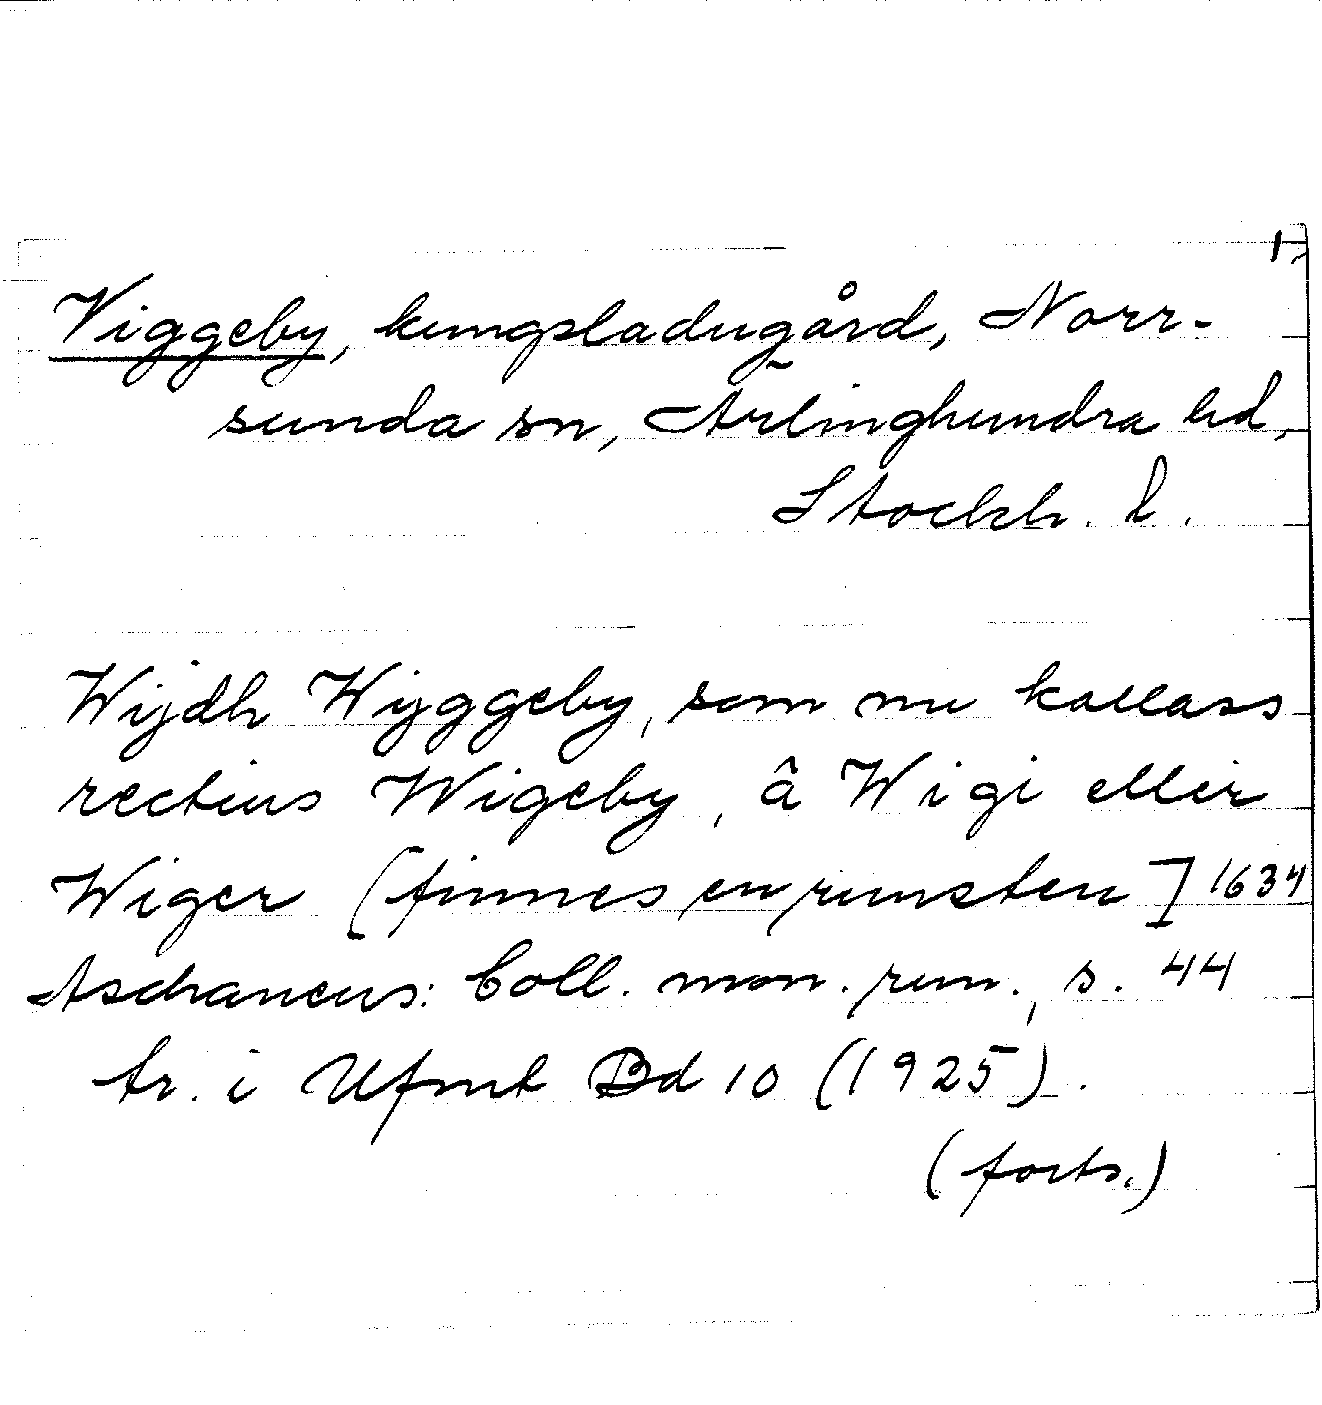 1,
Viggeby, kungsladugård, Norr-
sunda sn, Ärlinghundra hd,
Stockh. l.
Wijdh Wijggeby, som nu kallass
rectius Wigeby, â Wigi eller
Wiger [finnes en runsten] 1634
Aschaneus: Coll. mon. run., s. 44
tr. i Ufmt Bd 10 (1925).
(forts.)